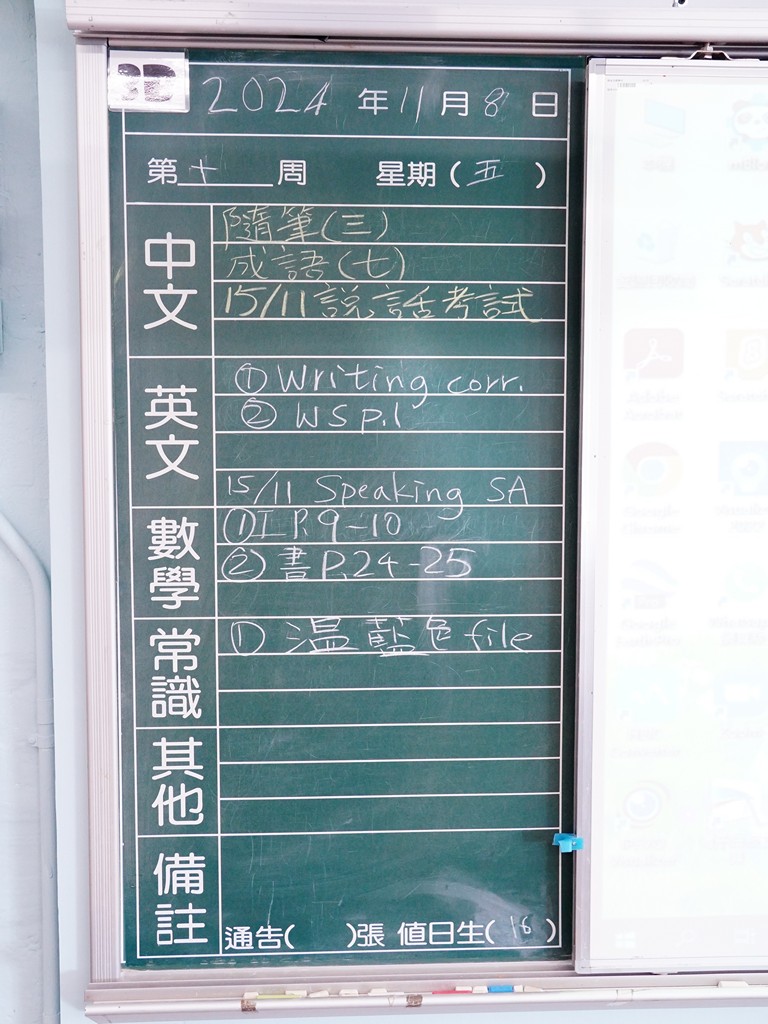 3D
2024 年 11 月 8 日
第 十 周 星期 ( 五 )
中文
隨筆(三)
成語(七)
15/11 說話考試
英文
① Writing corr.
② WS p.1
15/11 Speaking SA
數學
① 工 P.9-10
② 書 P.24-25
常識
① 温藍色 file
其他
備註
通告( )張 值日生( 16 )